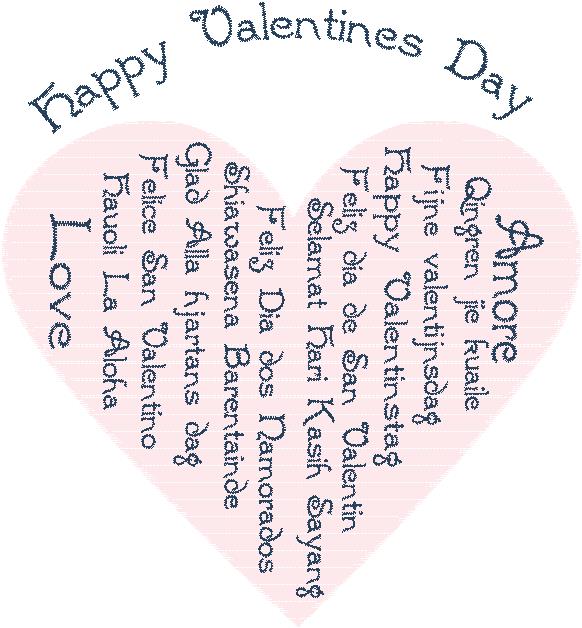 Happy Valentines Day
Amore
Qingren jie kuaile
Fijne valentijnsdag
Happy Valentinstag
Feliz dia de San Valentin
Selamat Hari Kasih Sayang
Feliz Dia dos Namorados
Shiawasena Barentainde
Glad Alla hjartans dag
Felice San Valentino
Hauoli La Aloha
Love